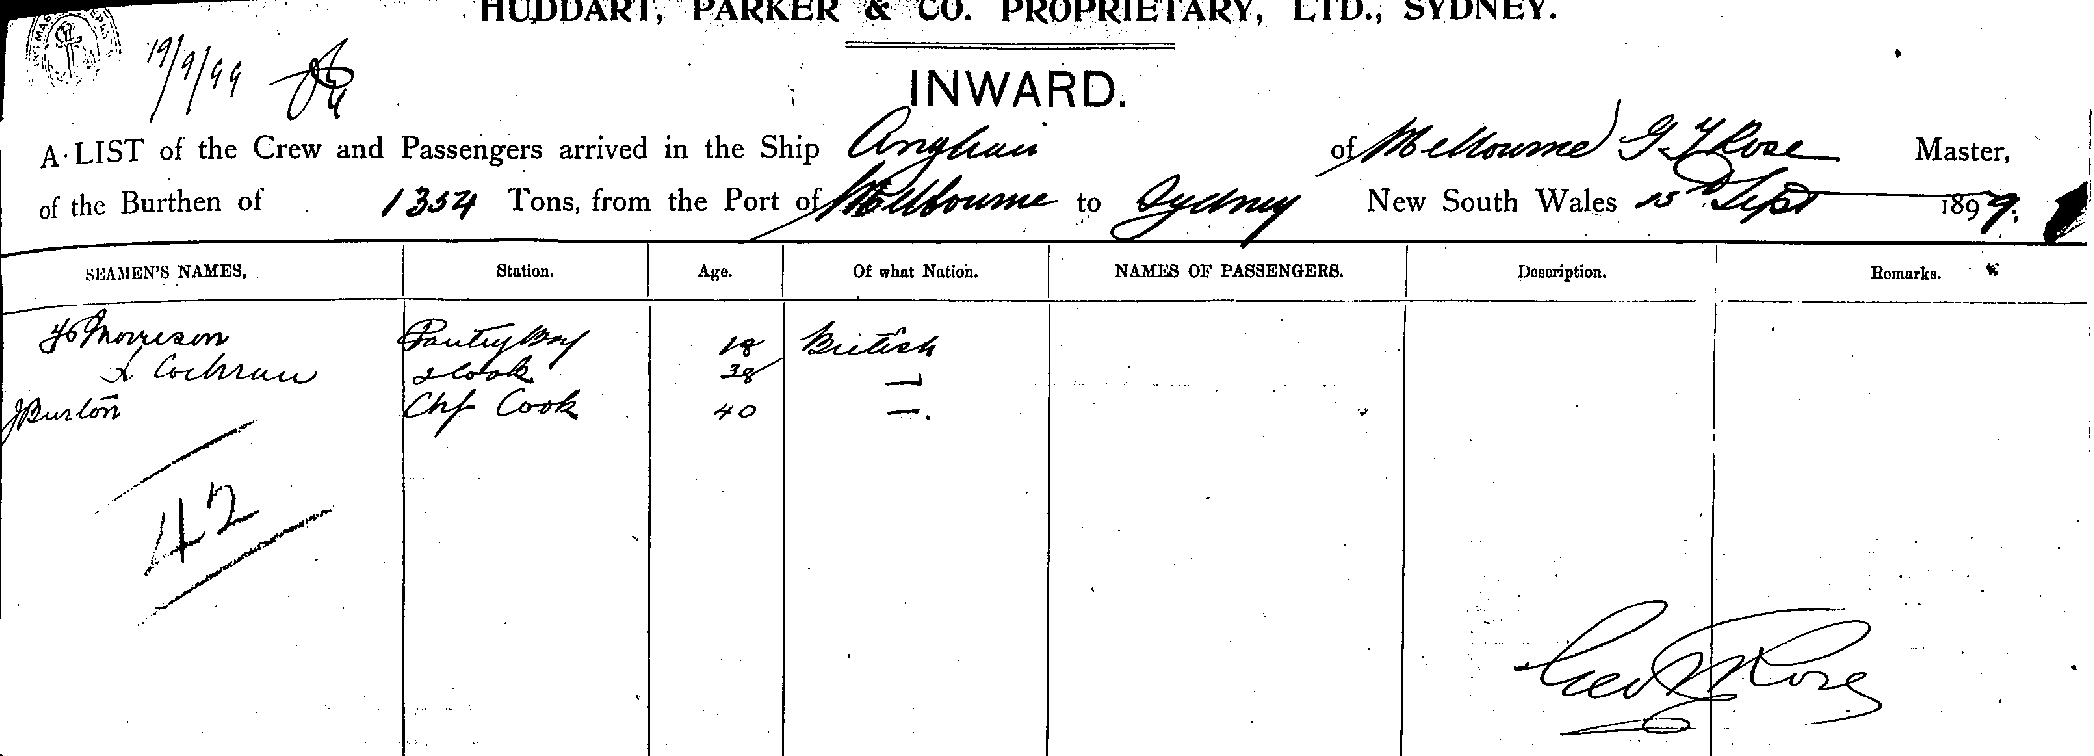 HUDDART, PARKER & CO. PROPRIETARY, LTD., SYDNEY.
19/9/99
INWARD.
A LIST of the Crew and Passengers arrived in the Ship Anglian of Melbourne G Y Rose Master,
of the Burthen of 1354 Tons, from the Port of Melbourne to Sydney New South Wales 15th Sept 1899.
SEAMEN'S NAMES, Station. Age. Of what Nation. NAMES OF PASSENGERS. Description. Remarks.
Morrison Pantry Boy 18 British
Cochran 2 Cook 38 —
J Burton Chf Cook 40 —.
42
Geo Y Rose